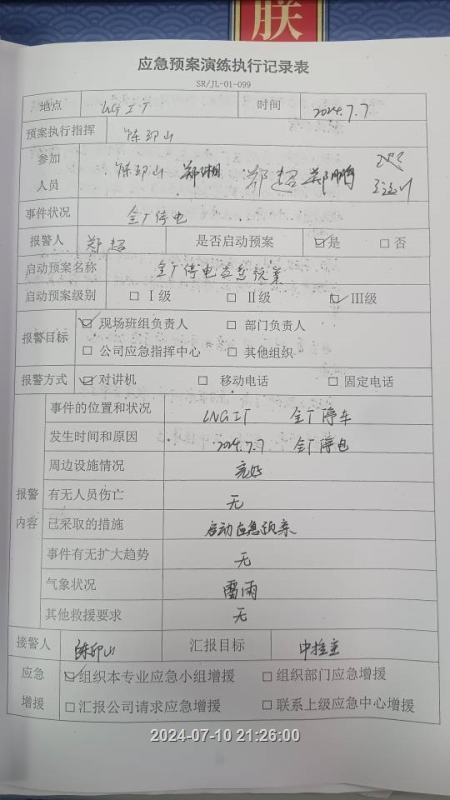 朕
应急预案演练执行记录表
SR/JL-01-099
地点 LNG工厂 时间 2024.7.7
预案执行指挥 陈印山
参加人员 陈印山 郑湘 郑超 郑鹏
事件状况 全厂停电
报警人 郑超 是否启动预案 ☑是 □否
启动预案名称 全厂停电应急预案
启动预案级别 □Ⅰ级 □Ⅱ级 ☑Ⅲ级
报警目标 ☑现场班组负责人 □部门负责人
□公司应急指挥中心 □其他组织
报警方式 ☑对讲机 □移动电话 □固定电话
报警内容
事件的位置和状况 LNG工厂 全厂停车
发生时间和原因 2024.7.7 全厂停电
周边设施情况 完好
有无人员伤亡 无
已采取的措施 启动应急预案
事件有无扩大趋势 无
气象状况 雷雨
其他救援要求 无
接警人 陈印山 汇报目标 中控室
应急增援 ☑组织本专业应急小组增援 □组织部门应急增援
□汇报公司请求应急增援 □联系上级应急中心增援
2024-07-10 21:26:00